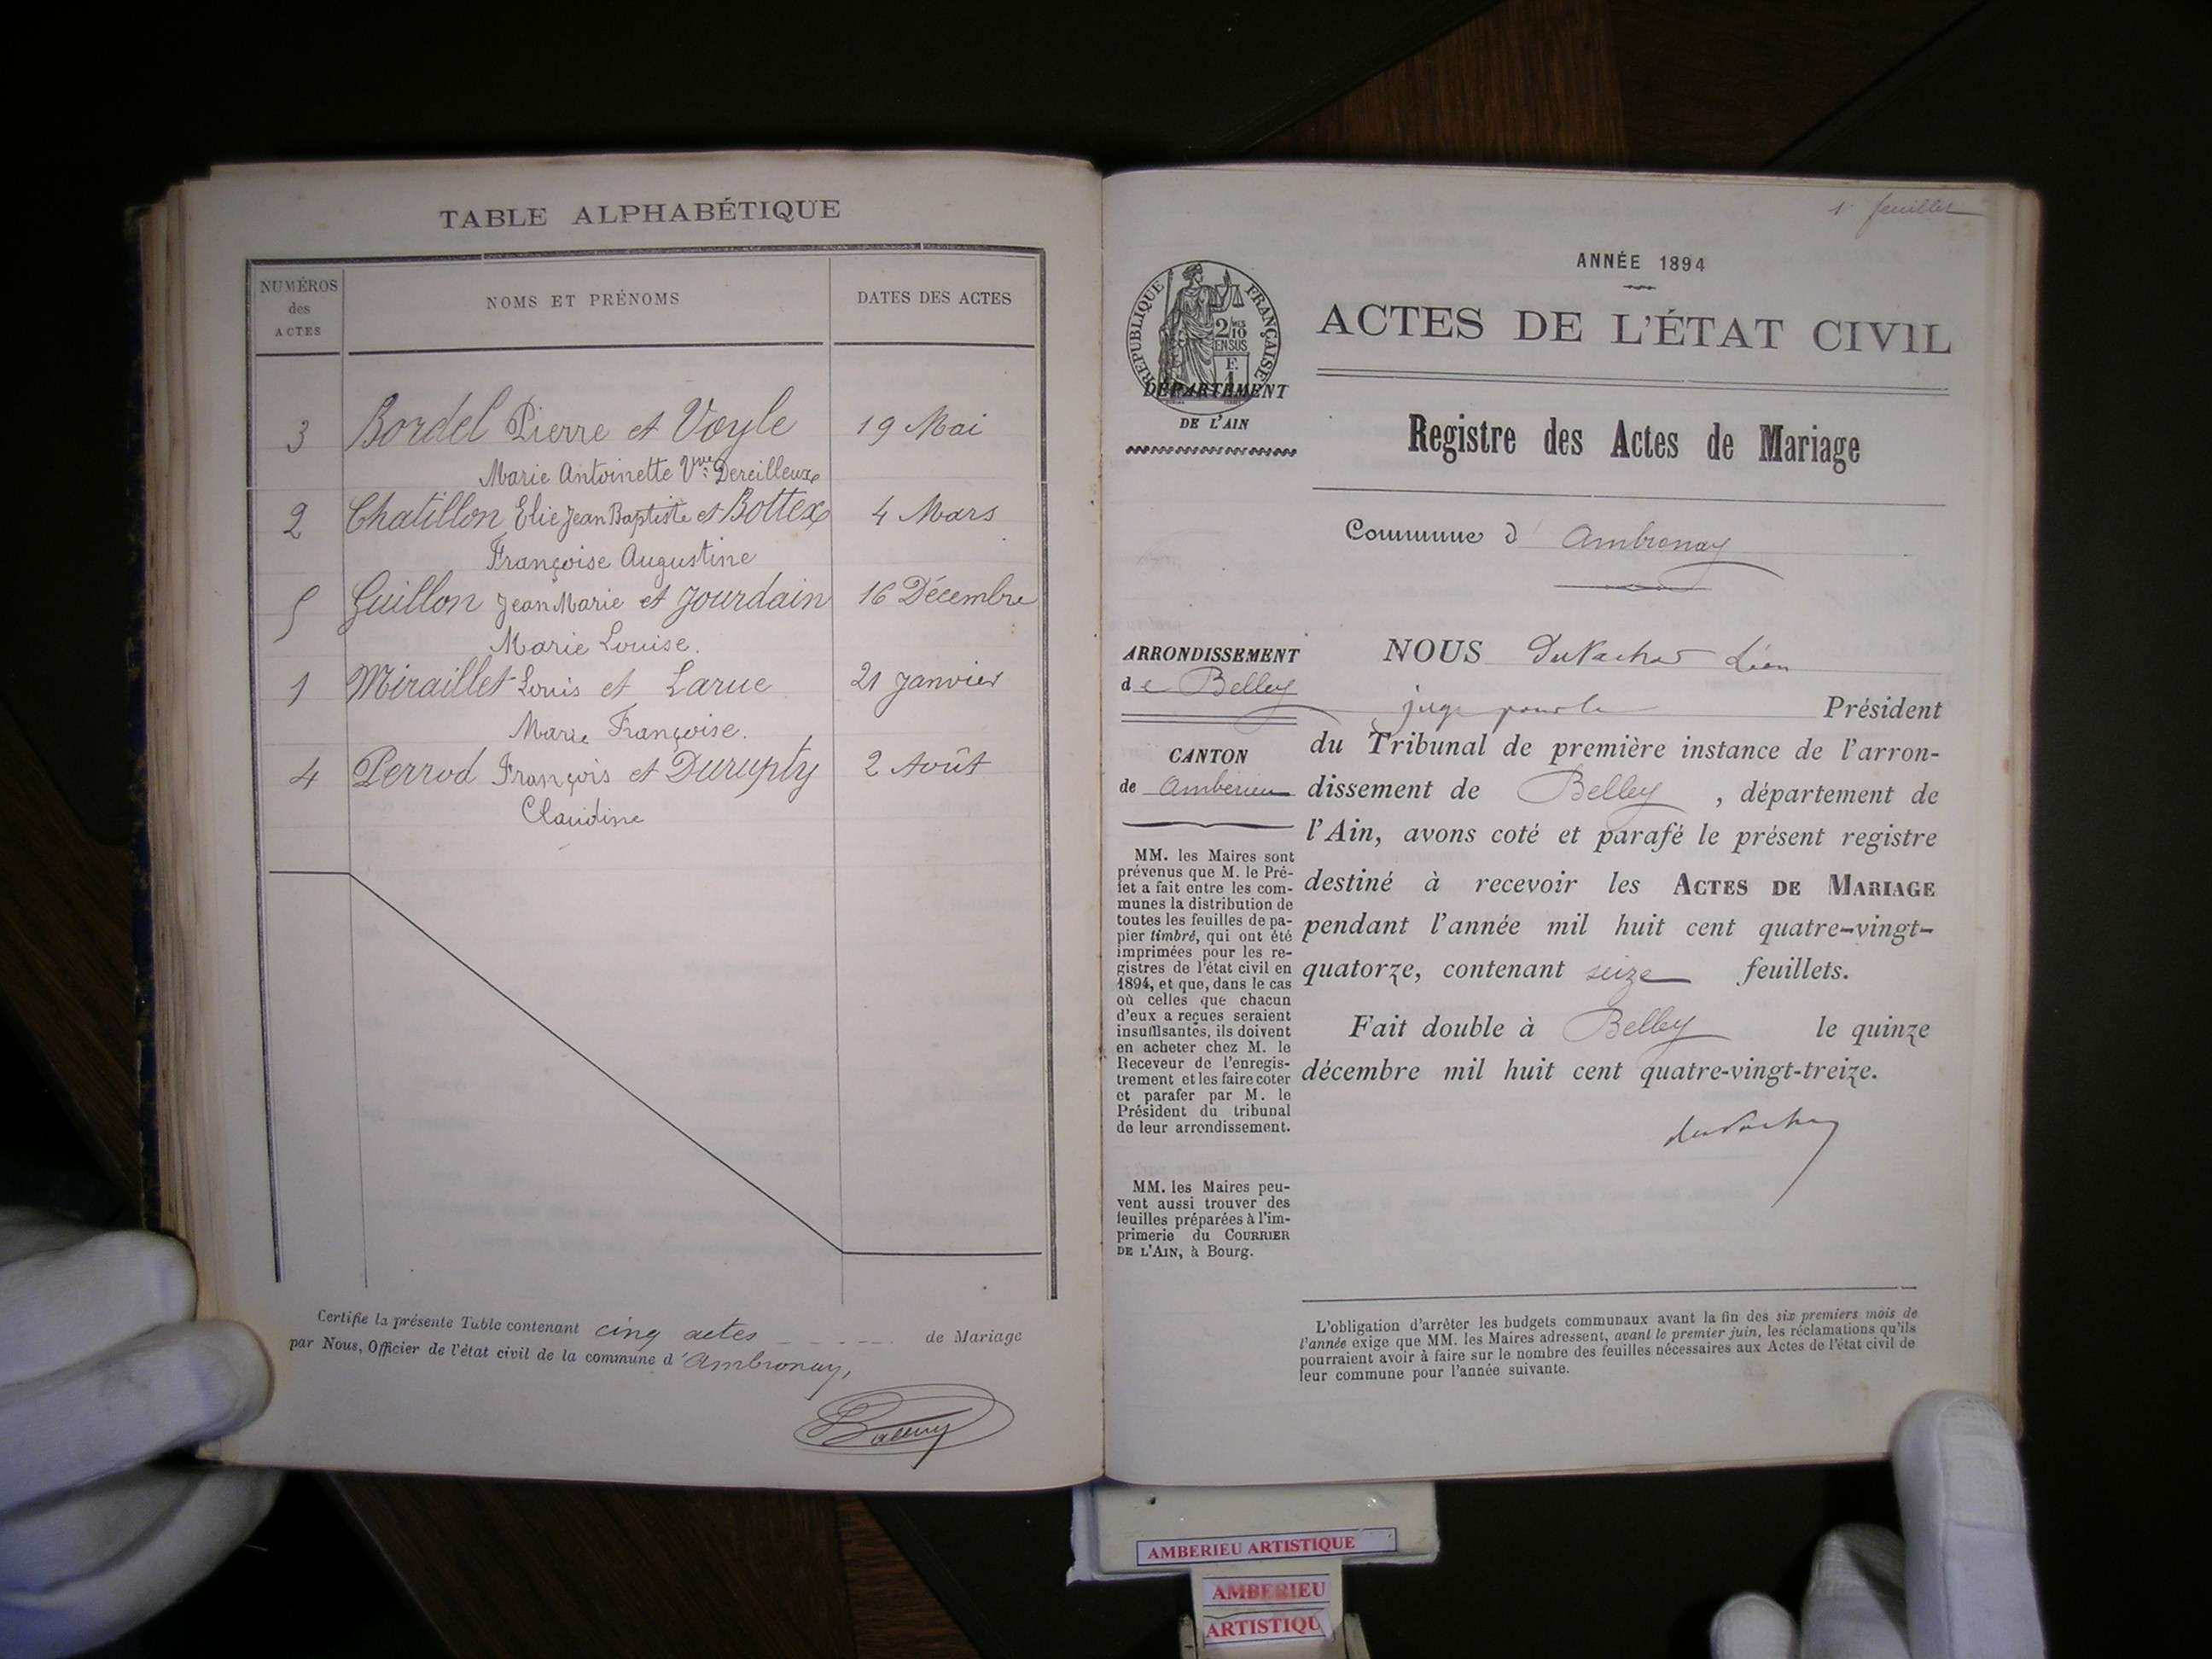 TABLE ALPHABÉTIQUE
NUMÉROS
des
ACTES
NOMS ET PRÉNOMS
DATES DES ACTES
3 Bordel Pierre et Voyle 19 Mai
Marie Antoinette Vve Dereilleux
2 Chatillon Elie Jean Baptiste et Bottex 4 Mars
Françoise Augustine
5 Guillon Jean Marie et Jourdain 16 Décembre
Marie Louise.
1 Miraillet Louis et Larue 21 Janvier
Marie Françoise.
4 Perrod François et Durupty 2 Août
Claudine
Certifie la présente Table contenant cinq actes de Mariage
par Nous, Officier de l'état civil de la commune d'Ambronay,
1er feuillet
ANNÉE 1894
ACTES DE L'ÉTAT CIVIL
RÉPUBLIQUE FRANÇAISE
2/10
EN SUS
DÉPARTEMENT
DE L'AIN
Registre des Actes de Mariage
Commune d'Ambronay
ARRONDISSEMENT
de Belley
CANTON
de Ambérieu
MM. les Maires sont
prévenus que M. le Pré-
fet a fait entre les com-
munes la distribution de
toutes les feuilles de pa-
pier timbré, qui ont été
imprimées pour les re-
gistres de l'état civil en
1894, et que, dans le cas
où celles que chacun
d'eux a reçues seraient
insuffisantes, ils doivent
en acheter chez M. le
Receveur de l'enregis-
trement et les faire coter
et parafer par M. le
Président du tribunal
de leur arrondissement.
MM. les Maires peu-
vent aussi trouver des
feuilles préparées à l'im-
primerie du COURRIER
DE L'AIN, à Bourg.
NOUS Léon
juge pour le Président
du Tribunal de première instance de l'arron-
dissement de Belley, département de
l'Ain, avons coté et parafé le présent registre
destiné à recevoir les ACTES DE MARIAGE
pendant l'année mil huit cent quatre-vingt-
quatorze, contenant seize feuillets.
Fait double à Belley le quinze
décembre mil huit cent quatre-vingt-treize.
L'obligation d'arrêter les budgets communaux avant la fin des six premiers mois de
l'année exige que MM. les Maires adressent, avant le premier juin, les réclamations qu'ils
pourraient avoir à faire sur le nombre des feuilles nécessaires aux Actes de l'état civil de
leur commune pour l'année suivante.
AMBERIEU ARTISTIQUE
AMBERIEU
ARTISTIQU